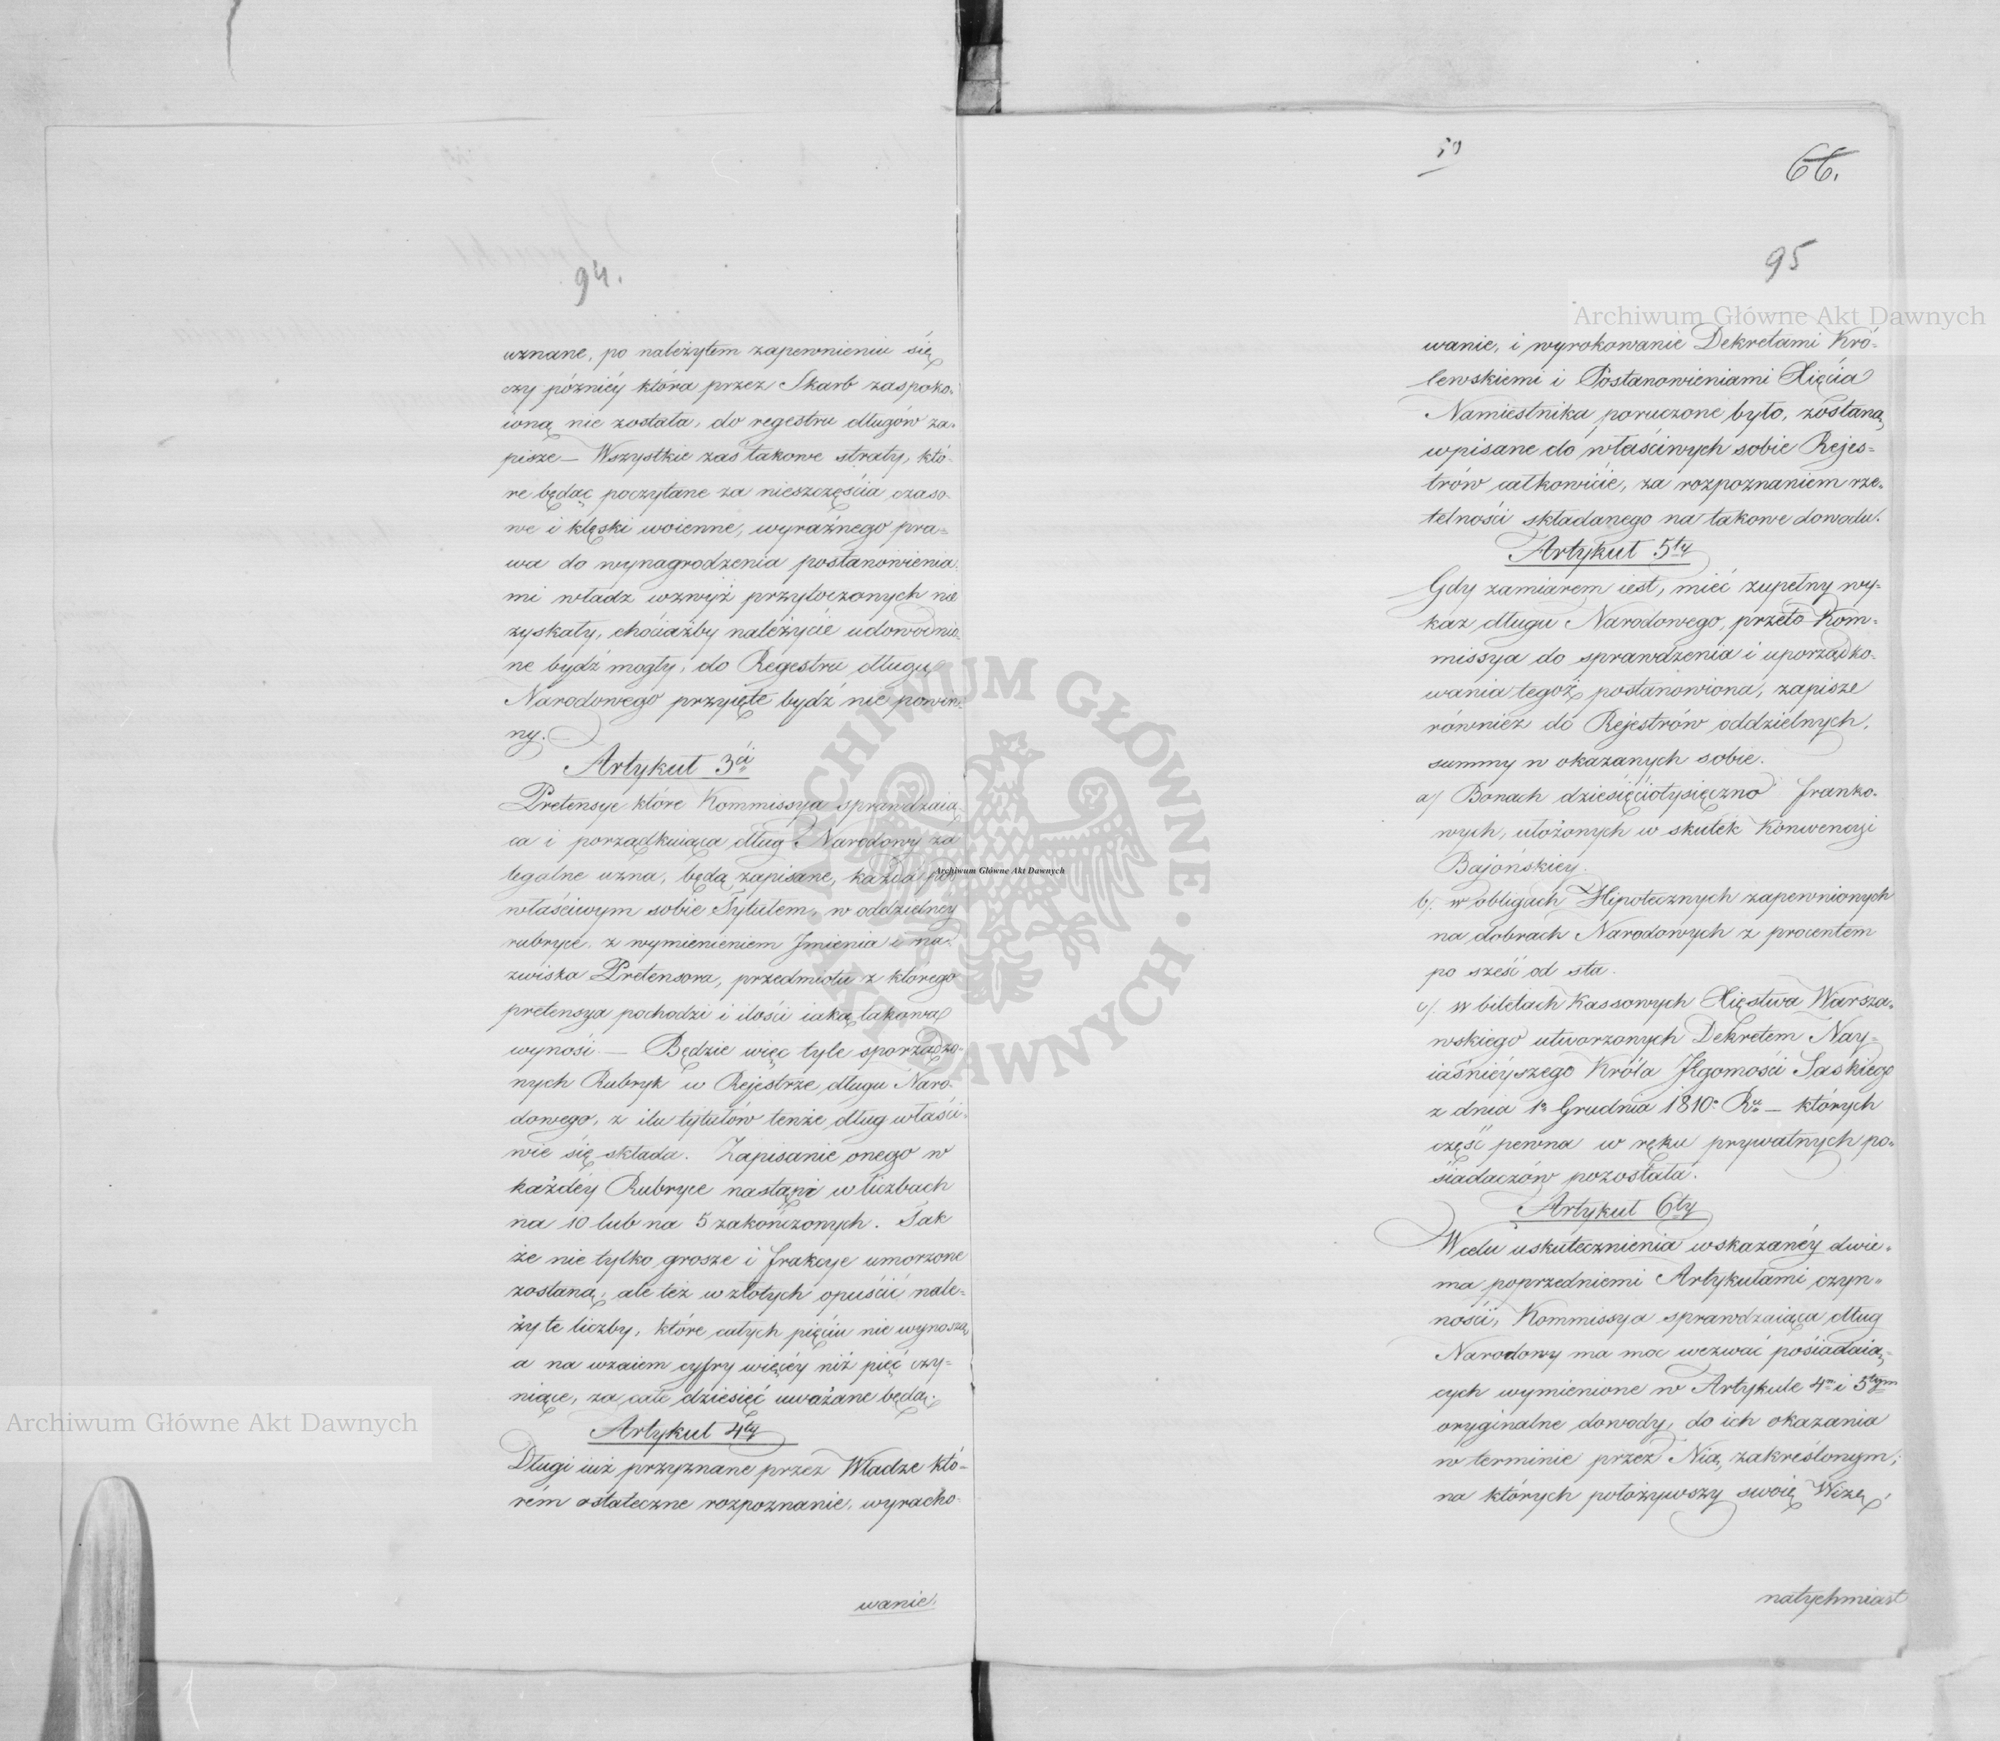 94.
uznane, po należytem zapewnieniu się
czy późniéy która przez Skarb zaspoko-
ioną nie została, do regestru długów za-
pisze — Wszystkie zaś takowe straty, któ-
re będąc poczytane za nieszczęścia czaso-
we i klęski woienne, wyraźnego pra-
wa do wynagrodzenia postanowienia-
mi władz wzwyż przytoczonych nie
zyskały, chociażby należycie udowodnio-
ne bydź mogły, do Regestru długu
Narodowego przyięte bydź nie powin-
ny.
Artykuł 3ci
Pretensye które Kommissya sprawdzaią-
ca i porządkuiąca dług Narodowy za
legalne uzna, będą zapisane, każda pod
właściwym sobie Tytułem, w oddzielney
rubryce, z wymienieniem Jmienia i na-
zwiska Pretensora, przedmiotu z którego
pretensya pochodzi i ilości iaką takowa
wynosi. — Będzie więc tyle sporządzo-
nych Rubryk w Rejestrze długu Naro-
dowego, z ilu tytułów tenże dług właści-
wie się składa. Zapisanie onego w
każdéy Rubryce nastąpi w liczbach
na 10 lub na 5 zakończonych. Tak
że nie tylko grosze i frakcye umorzone
zostaną, ale też w złotych opuścić nale-
ży te liczby, które całych pięciu nie wynoszą,
a na wzaiem cyfry więcéy niż pięć czy-
niące, za całe dziesięć uważane będą.
Artykuł 4ty
Długi iuż przyznane przez Władze któ-
rém ostateczne rozpoznanie, wyracho-
wanie.
66.
95
wanie, i wyrokowanie Dekretami Kró-
lewskiemi i Postanowieniami Xięcia
Namiestnika poruczone było, zostaną
wpisane do właściwych sobie Rejes-
trów całkowicie, za rozpoznaniem rze-
telności składanego na takowe dowodu.
Artykuł 5ty
Gdy zamiarem iest, mieć zupełny wy-
kaz długu Narodowego, przeto Kom-
missya do sprawdzenia i uporządko-
wania tegoż postanowiona, zapisze
również do Rejestrów oddzielnych,
summy w okazanych sobie.
a/ Bonach dziesięciotysięczno franko-
wych, ułożonych w skutek Konwencyi
Bajońskiey.
b/. w obligach Hipotecznych zapewnionych
na dobrach Narodowych z procentem
po sześć od sta.
c/. w biletach Kassowych Xięstwa Warsza-
wskiego utworzonych Dekretem Nay-
iaśniéyszego Króla Jłgomości Saskiego
z dnia 1o Grudnia 1810o Ru — których
część pewna w ręku prywatnych po-
siadaczów pozostała.
Artykuł 6ty
W celu uskutecznienia wskazanéy dwie-
ma poprzedniemi Artykułami czyn-
ności, Kommissya sprawdzaiąca dług
Narodowy ma moc wezwać posiadaią-
cych wymienione w Artykule 4m i 5tym
oryginalne dowody, do ich okazania
w terminie przez Nią zakreślonym;
na których położywszy swoię Wizę,
natychmiast
Archiwum Główne Akt Dawnych
Archiwum Główne Akt Dawnych
Archiwum Główne Akt Dawnych
ARCHIWUM GŁÓWNE AKT DAWNYCH